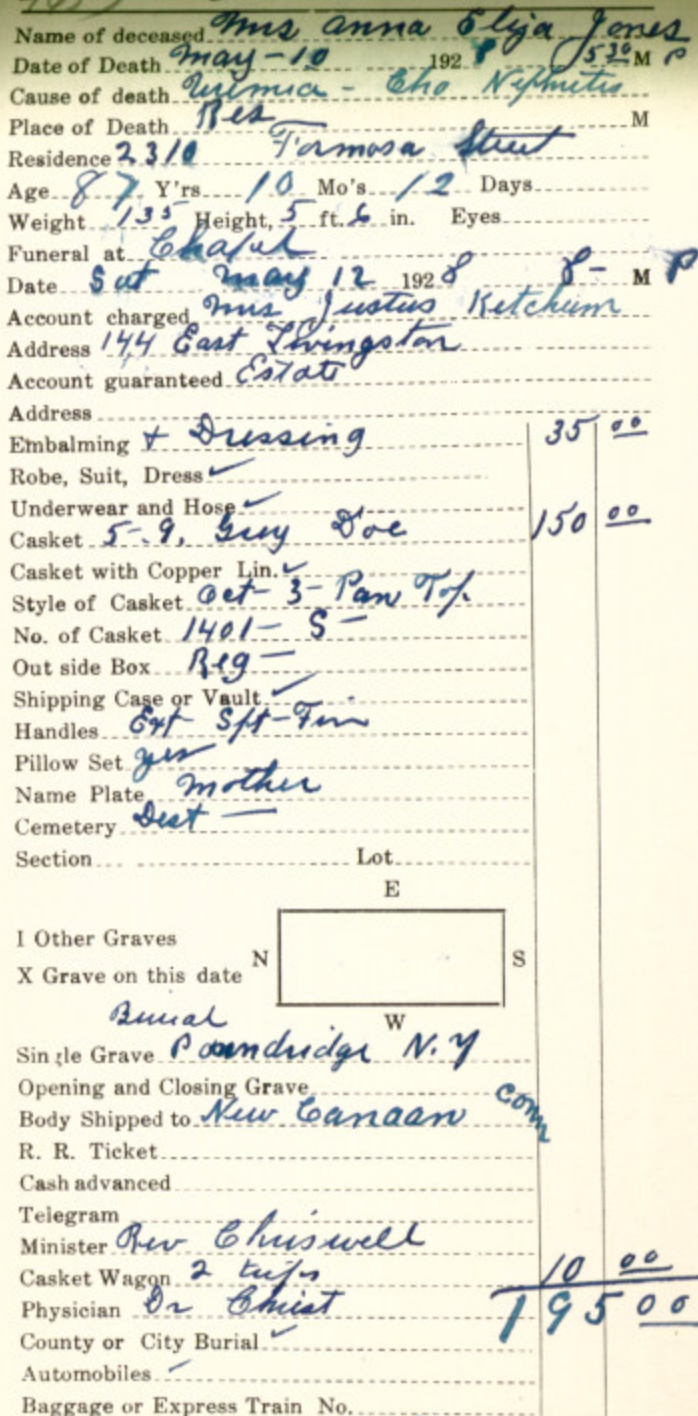 Name of deceased Mrs Anna Eliza Jones
Date of Death May-10 1928 5 30 M P
Cause of death Uremia - Cho Nephritis
Place of Death Res M
Residence 2310 Formosa Street
Age 87 Y'rs 10 Mo's 12 Days
Weight 135 Height, 5 ft. 6 in. Eyes
Funeral at Chapel
Date Sat May 12 1928 8- M P
Account charged Mrs Justus Ketchum
Address 144 East Livingston
Account guaranteed Estate
Address
Embalming + Dressing 35 00
Robe, Suit, Dress ✓
Underwear and Hose ✓
Casket 5-9, Grey Doe 150 00
Casket with Copper Lin. ✓
Style of Casket Oct-3-Pan Top
No. of Casket 1401- S-
Out side Box Reg-
Shipping Case or Vault ✓
Handles Ext Sft-Fin
Pillow Set yes
Name Plate Mother
Cemetery Dest -
Section Lot
E
I Other Graves
N S
X Grave on this date
W
Burial
Single Grave Poundridge N.Y
Opening and Closing Grave
Body Shipped to New Canaan Conn
R. R. Ticket
Cash advanced
Telegram
Minister Rev Chriswell
Casket Wagon 2 trips 10 00
Physician Dr Christ 195 00
County or City Burial ✓
Automobiles
Baggage or Express Train No.